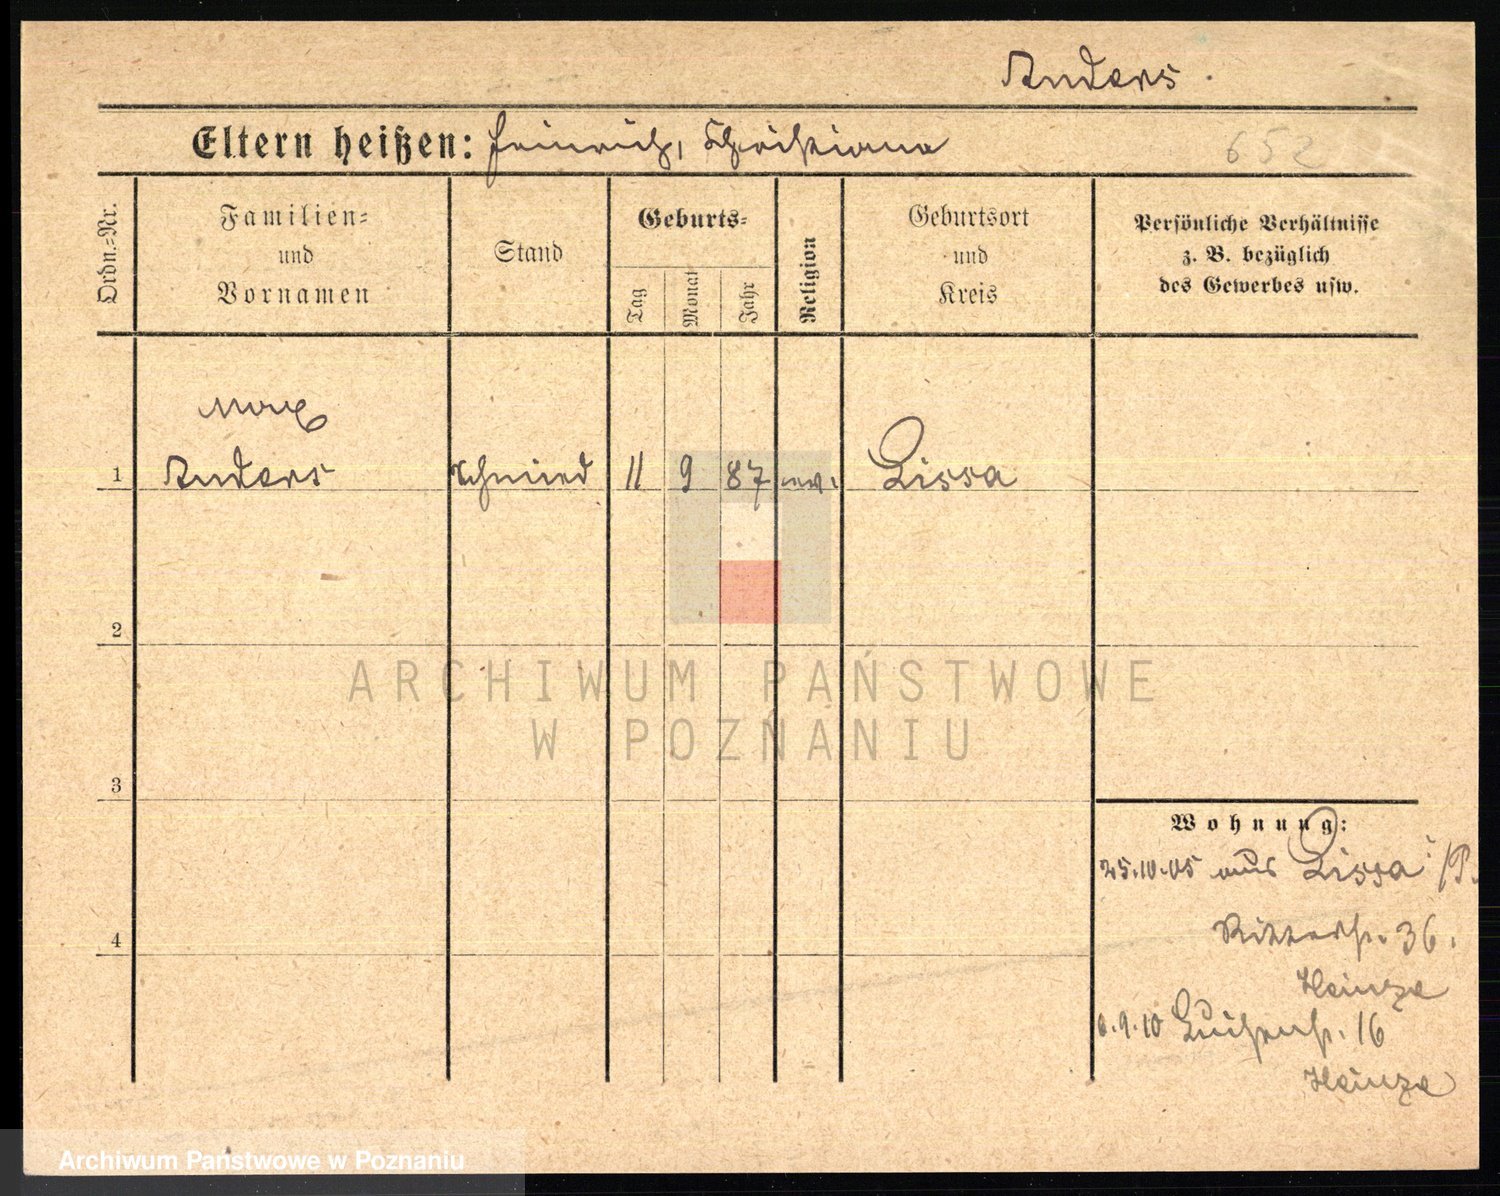 Anders.
Eltern heißen: Heinrich, Christiana
652
Ordn.-Nr.
Familien-
und
Vornamen
Stand
Geburts-
Tag
Monat
Jahr
Religion
Geburtsort
und
Kreis
Persönliche Verhältnisse
z. B. bezüglich
des Gewerbes usw.
Max
1 Anders Schmied 11 9 87 ev. Lissa
2
ARCHIWUM PAŃSTWOWE
W POZNANIU
3
Wohnung:
25.10.05 aus Lissa i/P.
4
Ritterstr. 36.
Heinze
9.10 Luisenstr. 16
Heinze
Archiwum Państwowe w Poznaniu